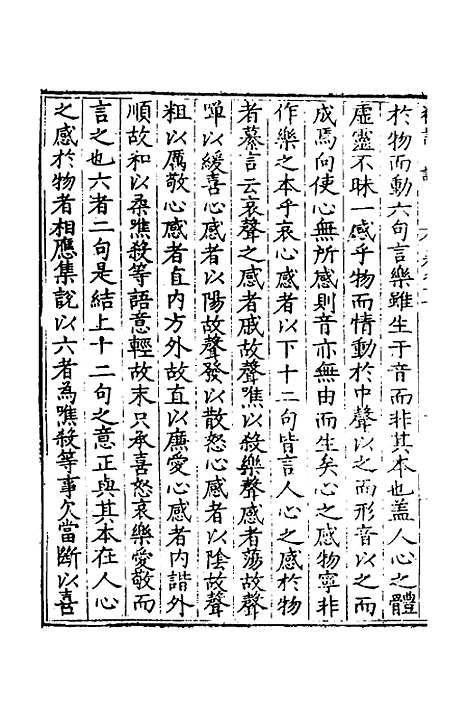 於物而動六句言樂雖生于音而非其本也蓋人心之體
虛靈不昧一感乎物而情動於中聲以之而形音以之而
成焉向使心無所感則音亦無由而生矣心之感物寧非
作樂之本乎哀心感者以下十二句皆言人心之感於物
者蔡言云哀聲之感者戚故聲噍以殺樂聲感者蕩故聲
嘽以緩喜心感者以陽故聲發以散怒心感者以陰故聲
粗以厲敬心感者直内方外故直以廉愛心感者内諧外
順故和以柔噍殺等語意輕故末只承喜怒哀樂愛敬而
言之也六者二句是結上十二句之意正與其本在人心
之感於物者相應集說以六者為噍殺等事欠當斷以喜